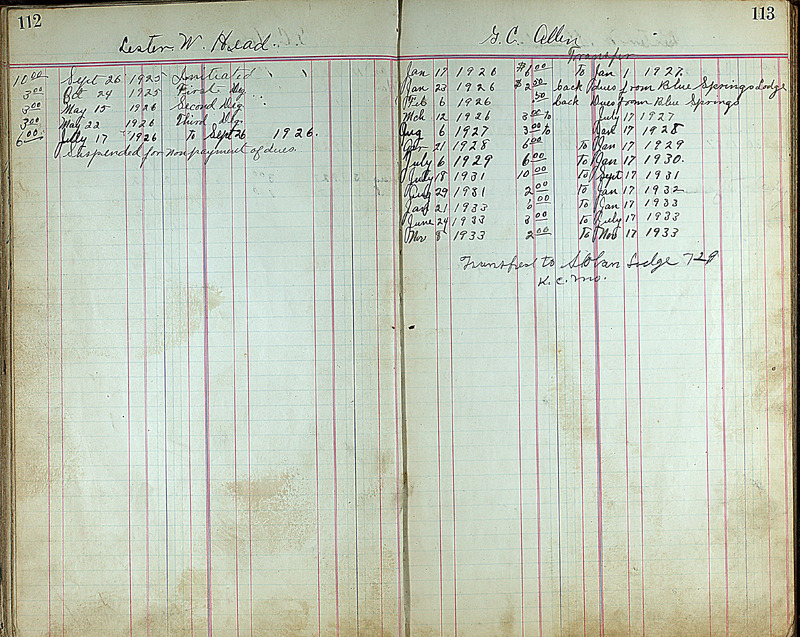 112
Lester W. Head.
10.00 Sept 26 1925 Initiated
3.00 Oct 24 1925 First Deg.
3.00 May 15 1926 Second Deg.
3.00 May 22 1926 Third Deg.
6.00 July 17 1926 To Sept 26 1926.
Suspended for non payment of dues.
113
G. C. Allen
Transfer
Jan 17 1926 $6.00 To Jan 1 1927.
Jan 23 1926 $2.50 back Dues from Blue Springs Lodge
Feb 6 1926 .50 back Dues from Blue Springs
Mch 12 1926 3.00 July 17 1927
Aug 6 1927 3.00 Jan 17 1928
Apr 21 1928 6.00 To Jan 17 1929
July 6 1929 6.00 To Jan 17 1930.
July 18 1931 10.00 To Sept 17 1931
Aug 29 1931 2.00 To Jan 17 1932
Jan 21 1933 6.00 To Jan 17 1933
June 24 1933 3.00 To July 17 1933
Nov 8 1933 2.00 To Nov 17 1933
to Lodge 729
K. C. Mo.